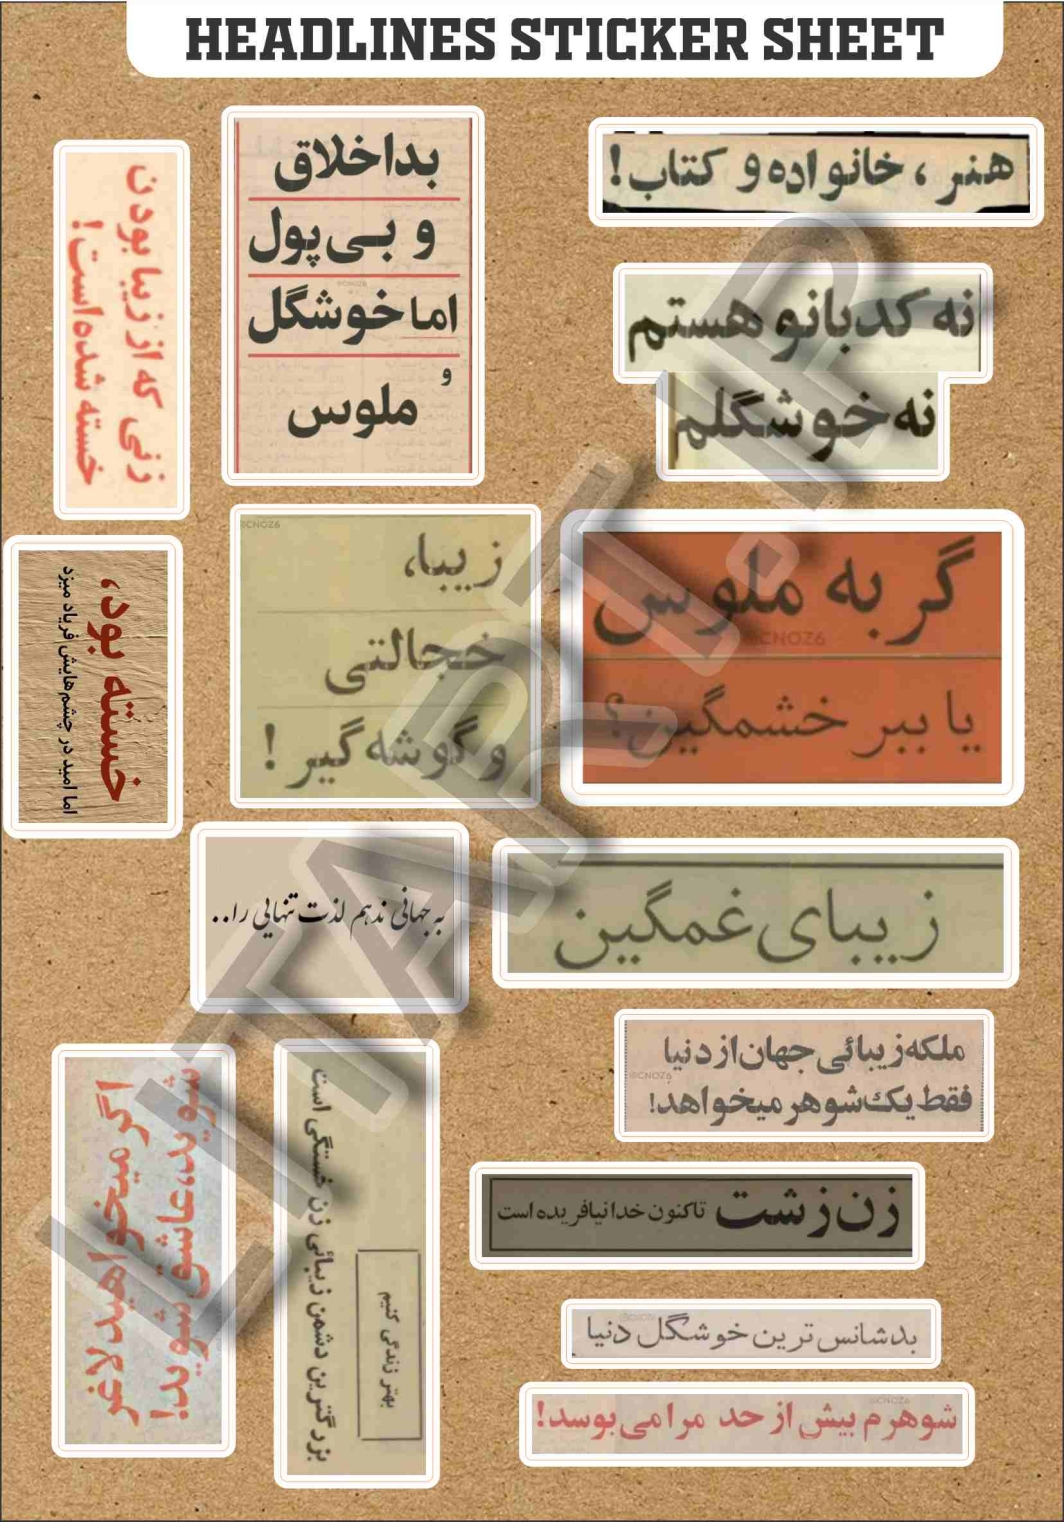 HEADLINES STICKER SHEET
هنر ، خانواده و کتاب!
بداخلاق
و بی‌پول
اما خوشگل
و
ملوس
زنی که از زیبا بودن
خسته شده است!
نه کدبانو هستم
نه خوشگلم
@CNOZ6
زیبا،
خجالتی
و گوشه‌گیر!
گربه ملوس
@CNOZ6
یا ببر خشمگین؟
خسته بود،
اما امید در چشم‌هایش فریاد میزد
به جهانی ندهم لذت تنهایی را..
زیبای غمگین
ملکه زیبائی جهان از دنیا
@CNOZ6
فقط یک شوهر میخواهد!
اگر میخواهید لاغر
شوید، عاشق شوید!
بزرگترین دشمن زیبائی زن خستگی است
بهتر زندگی کنیم
زن زشت تاکنون خدا نیافریده است
بدشانس ترین خوشگل دنیا
@CNOZ6
شوهرم بیش از حد مرا می‌بوسد!
LITART.IR